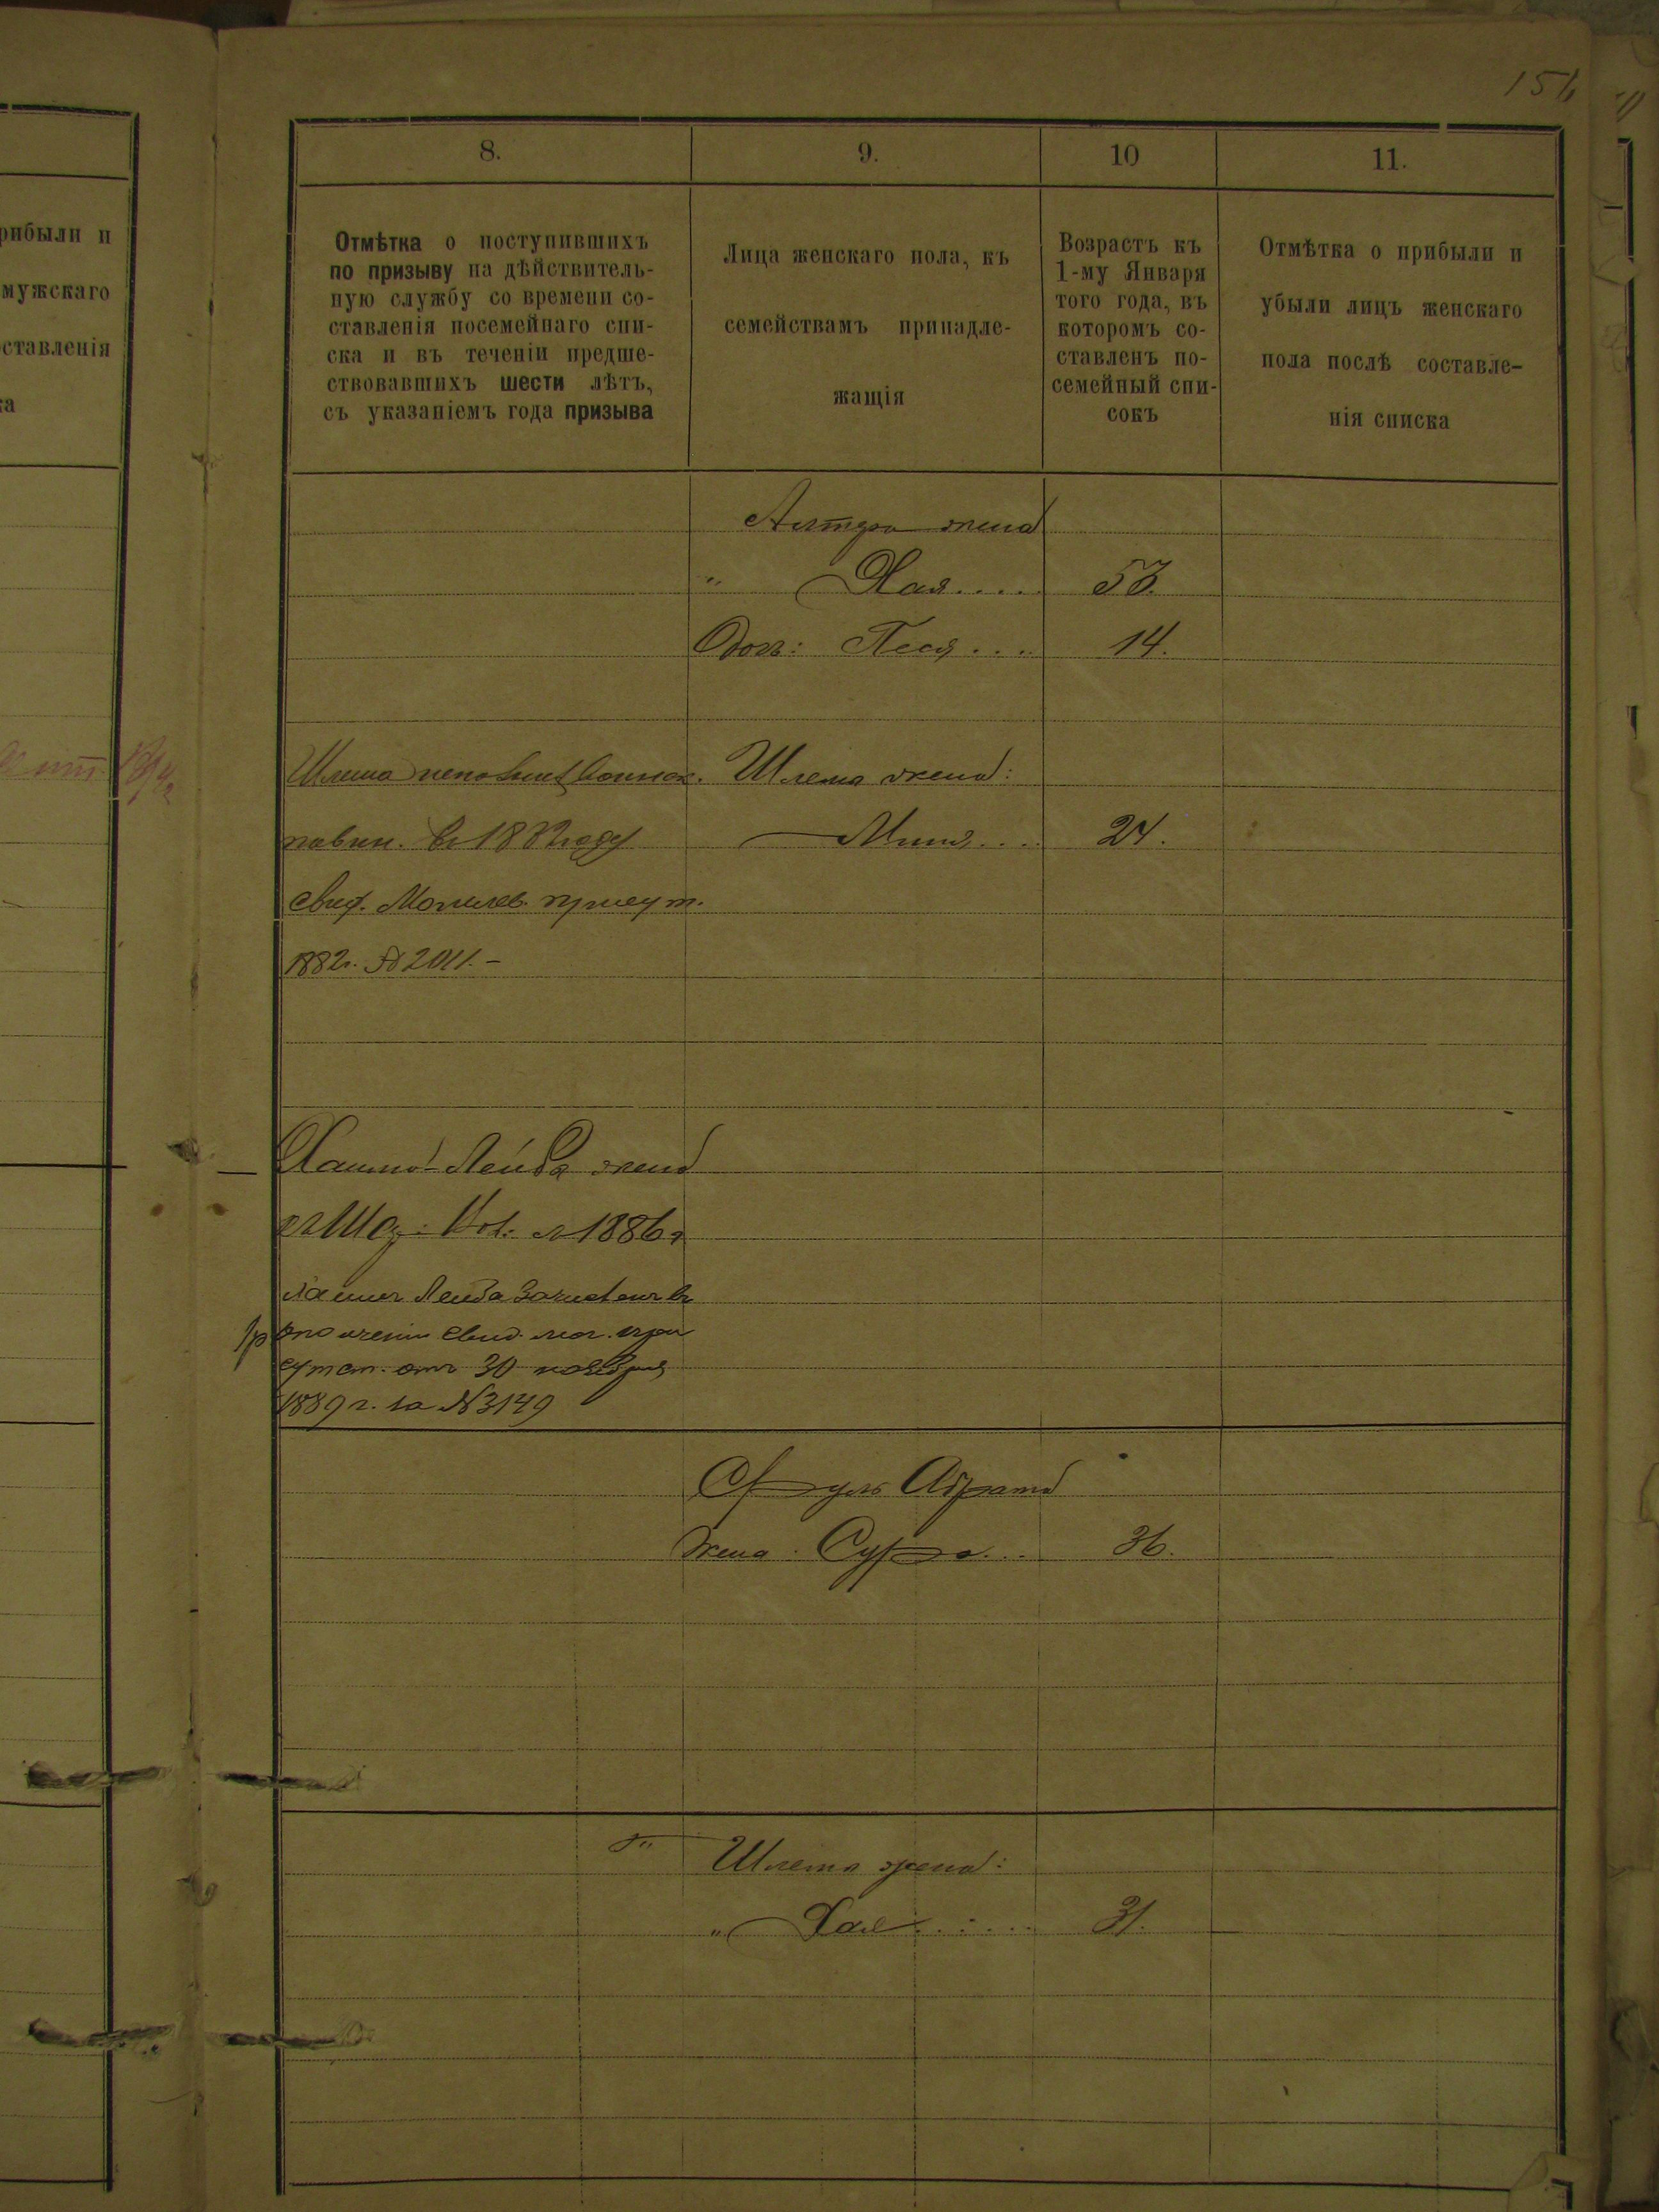 8.
9.
10
11.
Отмѣтка о поступившихъ
по призыву на дѣйствитель-
ную службу со времени со-
ставленія посемейнаго спи-
ска и въ теченіи предше-
ствовавшихъ шести лѣтъ,
съ указаніемъ года призыва
Лица женскаго пола, къ
семействамъ принадле-
жащія
Возрастъ къ
1-му Января
того года, въ
которомъ со-
ставленъ по-
семейный спи-
сокъ
Отмѣтка о прибыли и
убыли лицъ женскаго
пола послѣ составле-
нія списка
рибыли и
мужскаго
ставленія
ка
жена
" Хая.... 53.
Песя... 14.
Шлема
Шлема жена:
повин. въ 1882 году
Миня.... 24.
свид. Могилев. присут.
1882г. № 2011.-
Лейба
1886 г
Лейба зачисленъ въ
ополченіе свид. мог. при
сутст. отъ 30 ноября
1889 г. за №3149
Сруль Абрама
жена Сура... 36.
Шлема жена:
" Хая...... 31.